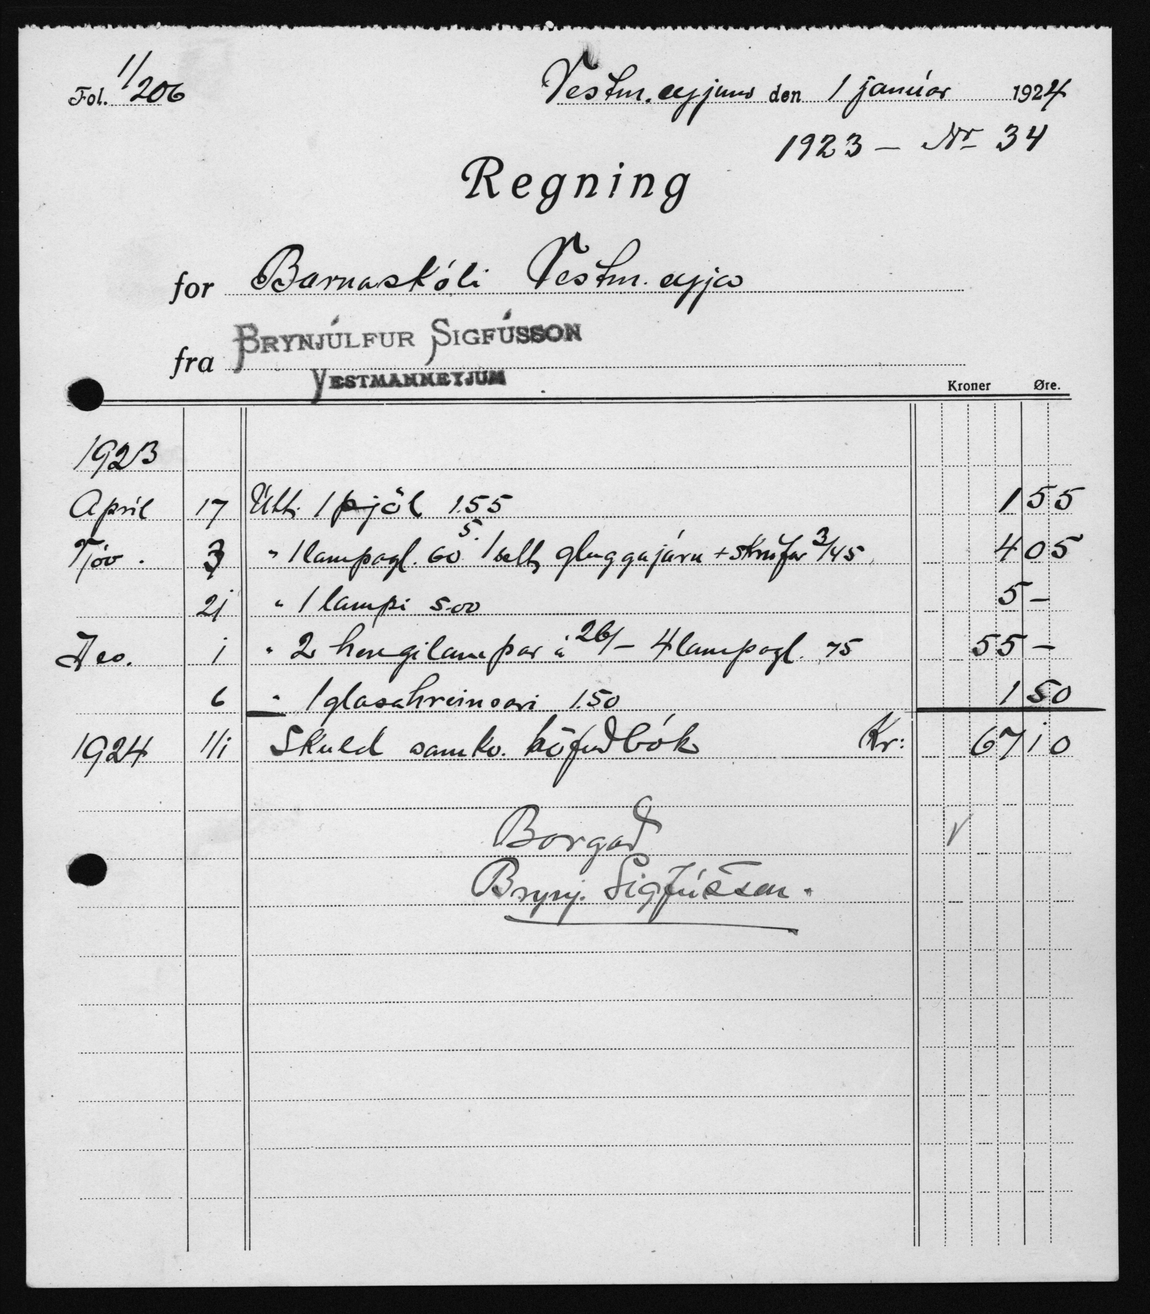 Fol. 1/206
Vestm.eyjum den 1 janúar 1924
1923 – Nr 34
Regning
for Barnaskóli Vestm.eyja
fra BRYNJÚLFUR SIGFÚSSON
VESTMANNEYJUM
Kroner Øre.
1923
April 17 Útt. 1 þjöl 1.55 1 55
Nóv. 3 " 1 lampagl. 60 1 gluggajárn + skrúfur 3/45 4 05
21 " 1 lampi 5.00 5 –
Des. 1 " 2 hengilampar á 26/– 4 lampagl. 75 55 –
6 " 1 glasahreinsari 1.50 1 50
1924 1/1 Skuld samkv. höfuðbók Kr: 67 10
Borgað
Brynj. Sigfússon.